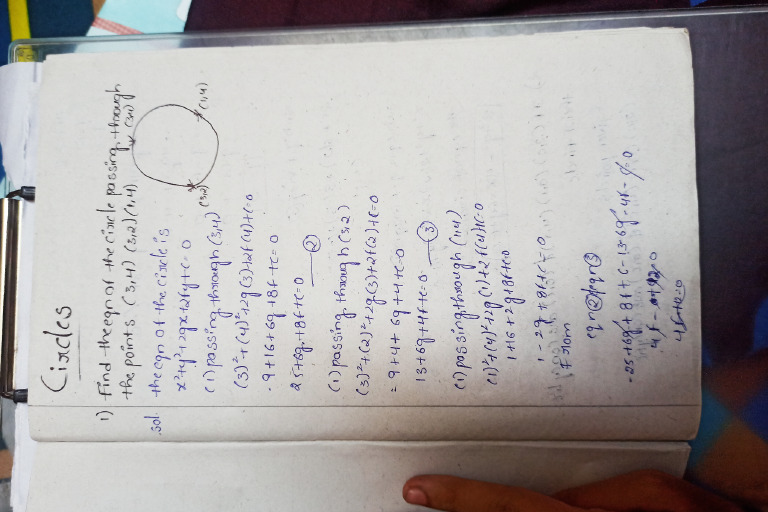 Circles
1) Find the eqn of the circle passing through
the points (3,4) (3,2) (1,4)
(3,4)
(1,4)
(3,2)
sol. the eqn of the circle is
x²+y²+2gx+2fy+c=0
(1) passing through (3,4)
(3)²+(4)²+2g(3)+2f(4)+c=0
9+16+6g+8f+c=0
25+6g+8f+c=0 ②
(1) passing through (3,2)
(3)²+(2)²+2g(3)+2f(2)+c=0
=9+4+6g+4f+c=0
13+6g+4f+c=0 ③
(1) passing through (1,4)
(1)²+(4)²+2g(1)+2f(4)+c=0
1+16+2g+8f+c=0
2g+8f+c=0
From
eqn ② eqn ③
25+6g+8f+c-13-6g-4f-c=0
4f
4f+12=0